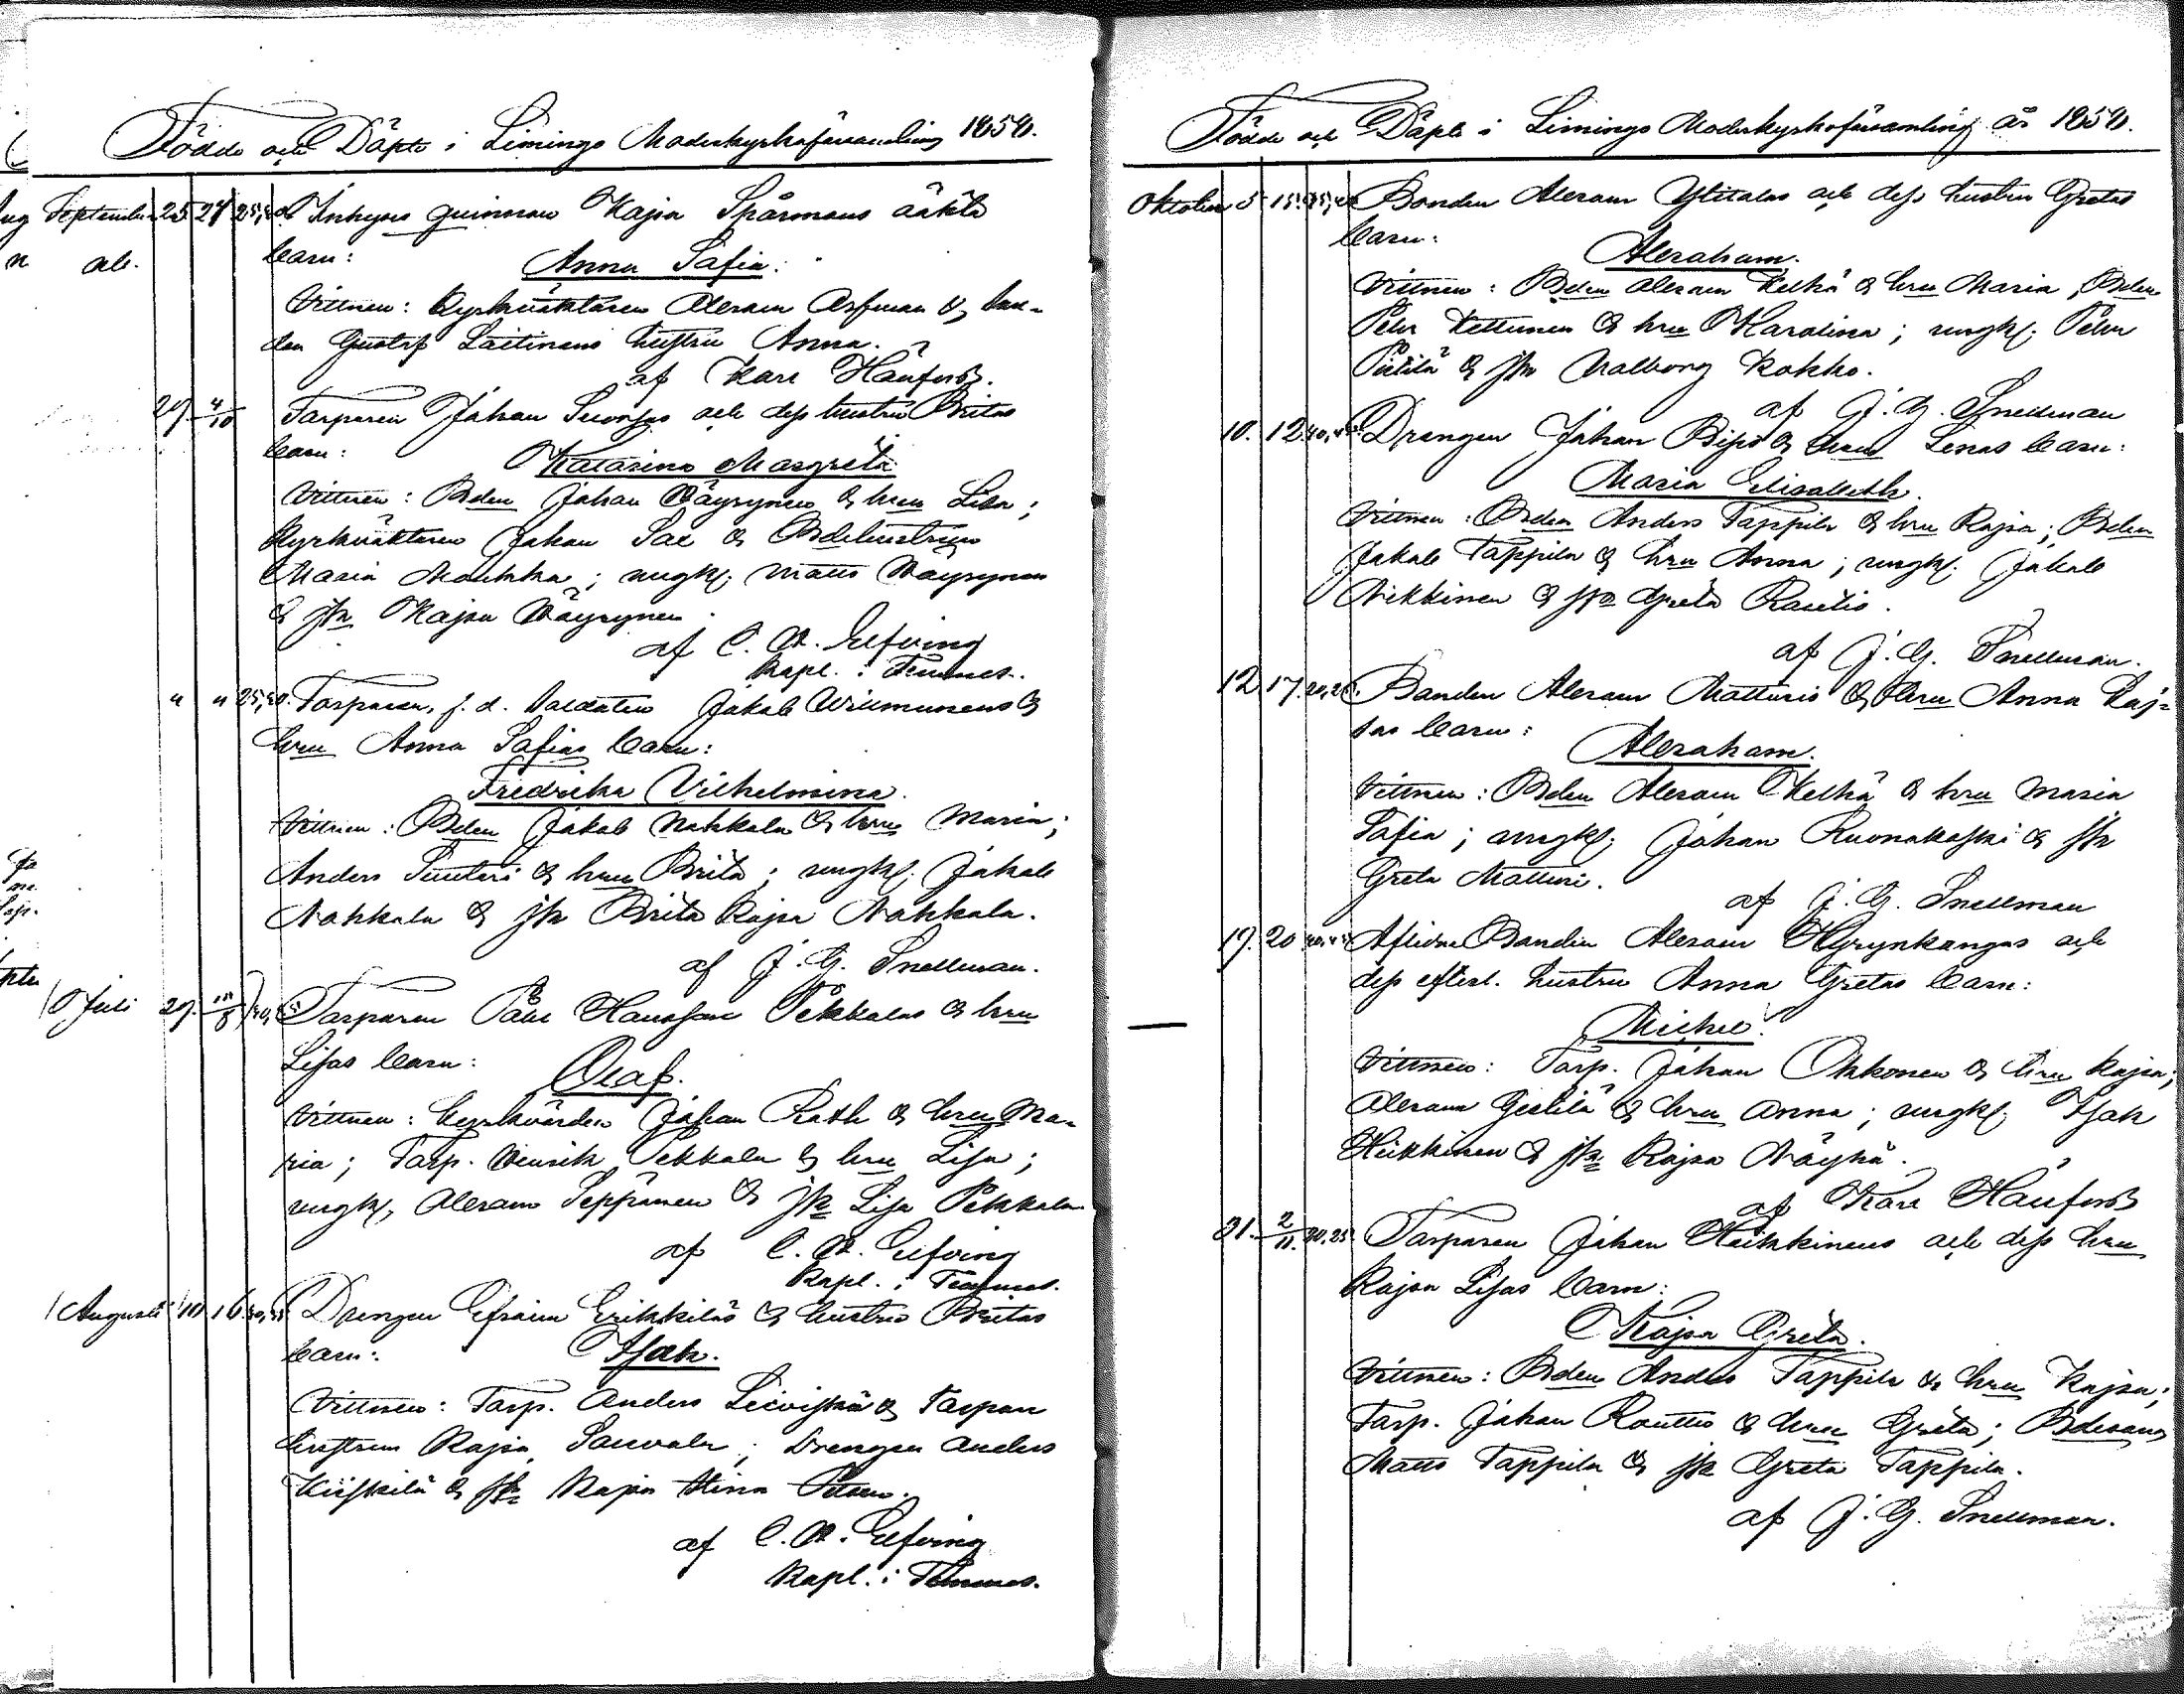 Födde och Döpte i Limingo Moderkyrkoförsamling 1854.
September 23 24 25,30. Inhyses quinnan Kajsa Spårmans oäkta
barn:
Anna Sofia.
Vittnen: Kyrkväktaren Abram Assman & bon-
den Gustaf Laitinens hustru Anna.
af Karl Hänfors.
29. 4/10 Torparen Johan Sivonens och dess hustru Britas
barn:
Katarina Margreta
Vittnen: Bden Johan Väyrynen & hru Lisa;
Kyrkväktaren Johan Sax & Bdehustrun
Maria Moukka; ungk. Matts Väyrynen
& jfr Kajsa Väyrynen.
af C. A. Elfving
Kapl. i Temmes.
" " 25,30. Torparen, f. d. Soldaten Jakob Willmunens &
hru Anna Sofias barn:
Fredrika Vilhelmina.
Vittnen: Bden Jakob Nahkala & hru Maria;
Anders Suutari & hru Brita; ungk. Jakob
Nahkala & jfr Brita Kajsa Nahkala.
af J. G. Snellman.
Juli 29. /8 Torparen Påhl Hansson Pekkalas & hru
Lisas barn:
Olaf.
Vittnen: Kyrkvärden Johan Rath & hru Ma-
ria; Torp. Henrik Pekkala & hru Lisa;
ungk. Abram Seppänen & jfr Lisa Pekkala
af C. A. Elfving
Kapl. i Temmes.
Augusti 10 16 Drengen Efraim Erikkiläs & hustru Britas
barn:
Isak.
Vittnen: Torp. Anders Liéviskä & Torpare
hustrun Kajsa Sauvola; Drengen Anders
Kiiskilä & jfr Kajsa Stina
af C. A. Elfving
Kapl. i Temmes.
Födde och Döpte i Limingo Moderkyrkoförsamling år 1854.
Oktober 5 15. Bonden Abram Ylitalos och dess hustru Gretas
barn:
Abraham.
Vittnen: Bden Abram Kelhä & hru Maria, Bden
Petr Kettunen & hru Karolina; ungk. Petr
Pietilä & jfr Valborg Kokko.
af J. G. Snellman
10. 12 40,45. Drengen Johan Pipo & hru Lenas barn:
Maria Elisabeth.
Vittnen: Bden Anders Tappila & hru Kajsa; Bden
Jakob Tappila & hru Anna; ungk. Jakob
Nikkinen & jfr Greta Rautio.
af J. G. Snellman.
12 17. 20,25. Bonden Abram Matturis & hru Anna Kaj-
sas barn:
Abraham.
Vittnen: Bden Abram Kelhä & hru Maria
Sofia; ungk. Johan Ruonakoski & jfr
Greta Matturi.
af J. G. Snellman
19. 20 40,45 Aflidne Bonden Abram Hyrynkangas och
dess efterl. hustru Anna Gretas barn:
Michel.
Vittnen: Torp. Johan Okkonen & hru Kajsa;
Abram Yrjetilä & hru Anna; ungk. Isak
Heikkinen & jfr Kajsa Näykä.
af Karl Hänfors
31. 2/11. 20,25 Torparen Johan Heikkinens och dess hru
Kajsa Lisas barn:
Kajsa Greta.
Vittnen: Bden Anders Tappila & hru Kajsa;
Torp. Johan Rautio & hru Greta; Bdeson
Matts Tappila & jfr Greta Tappila.
af J. G. Snellman.